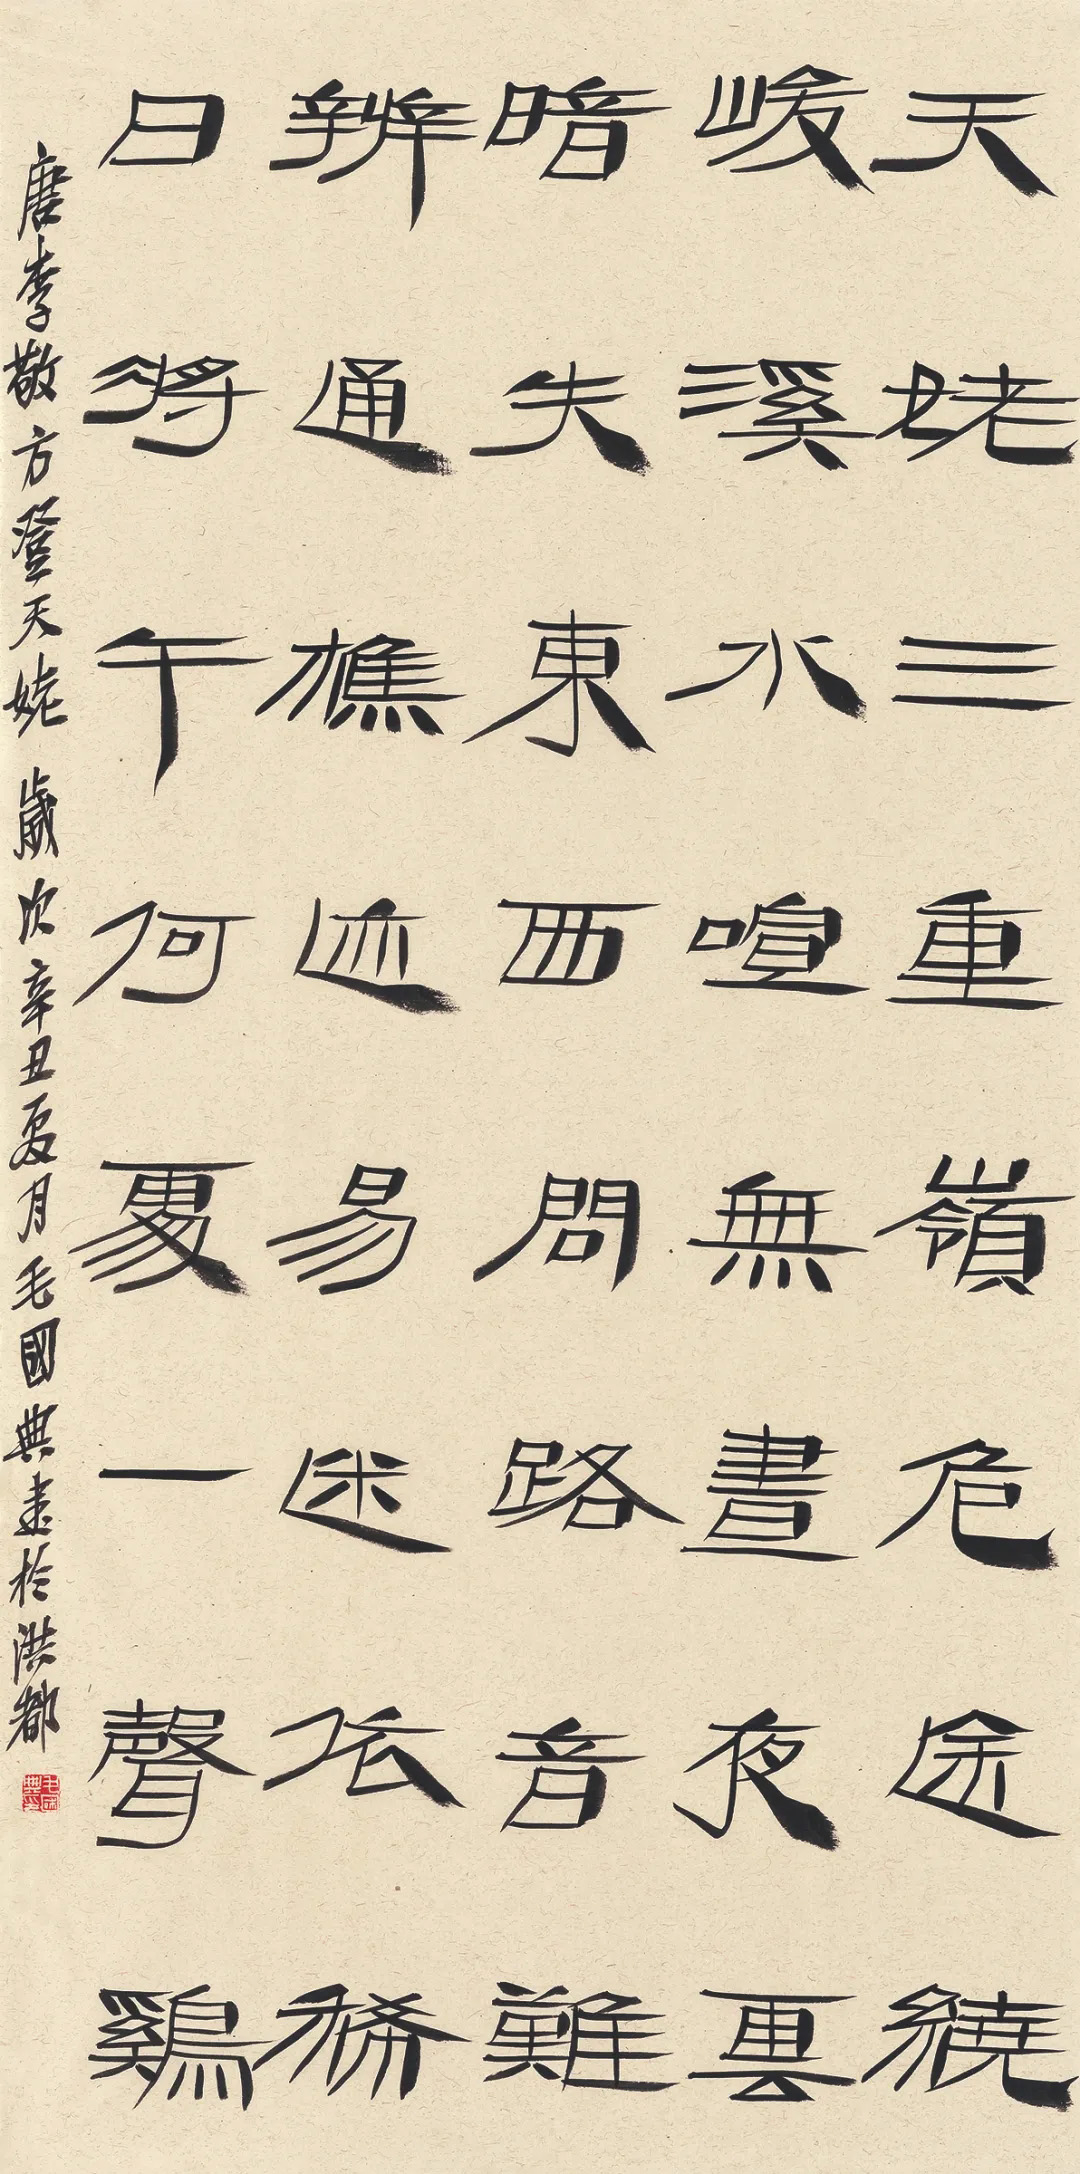 天姥三重嶺危途繞
峻溪水喧無晝夜雲
暗失東西問路音難
辨通樵迹易迷依稀
日將午何處一聲鷄
唐李敬方登天姥 歲次辛丑夏月毛國典書於洪都
毛國典印